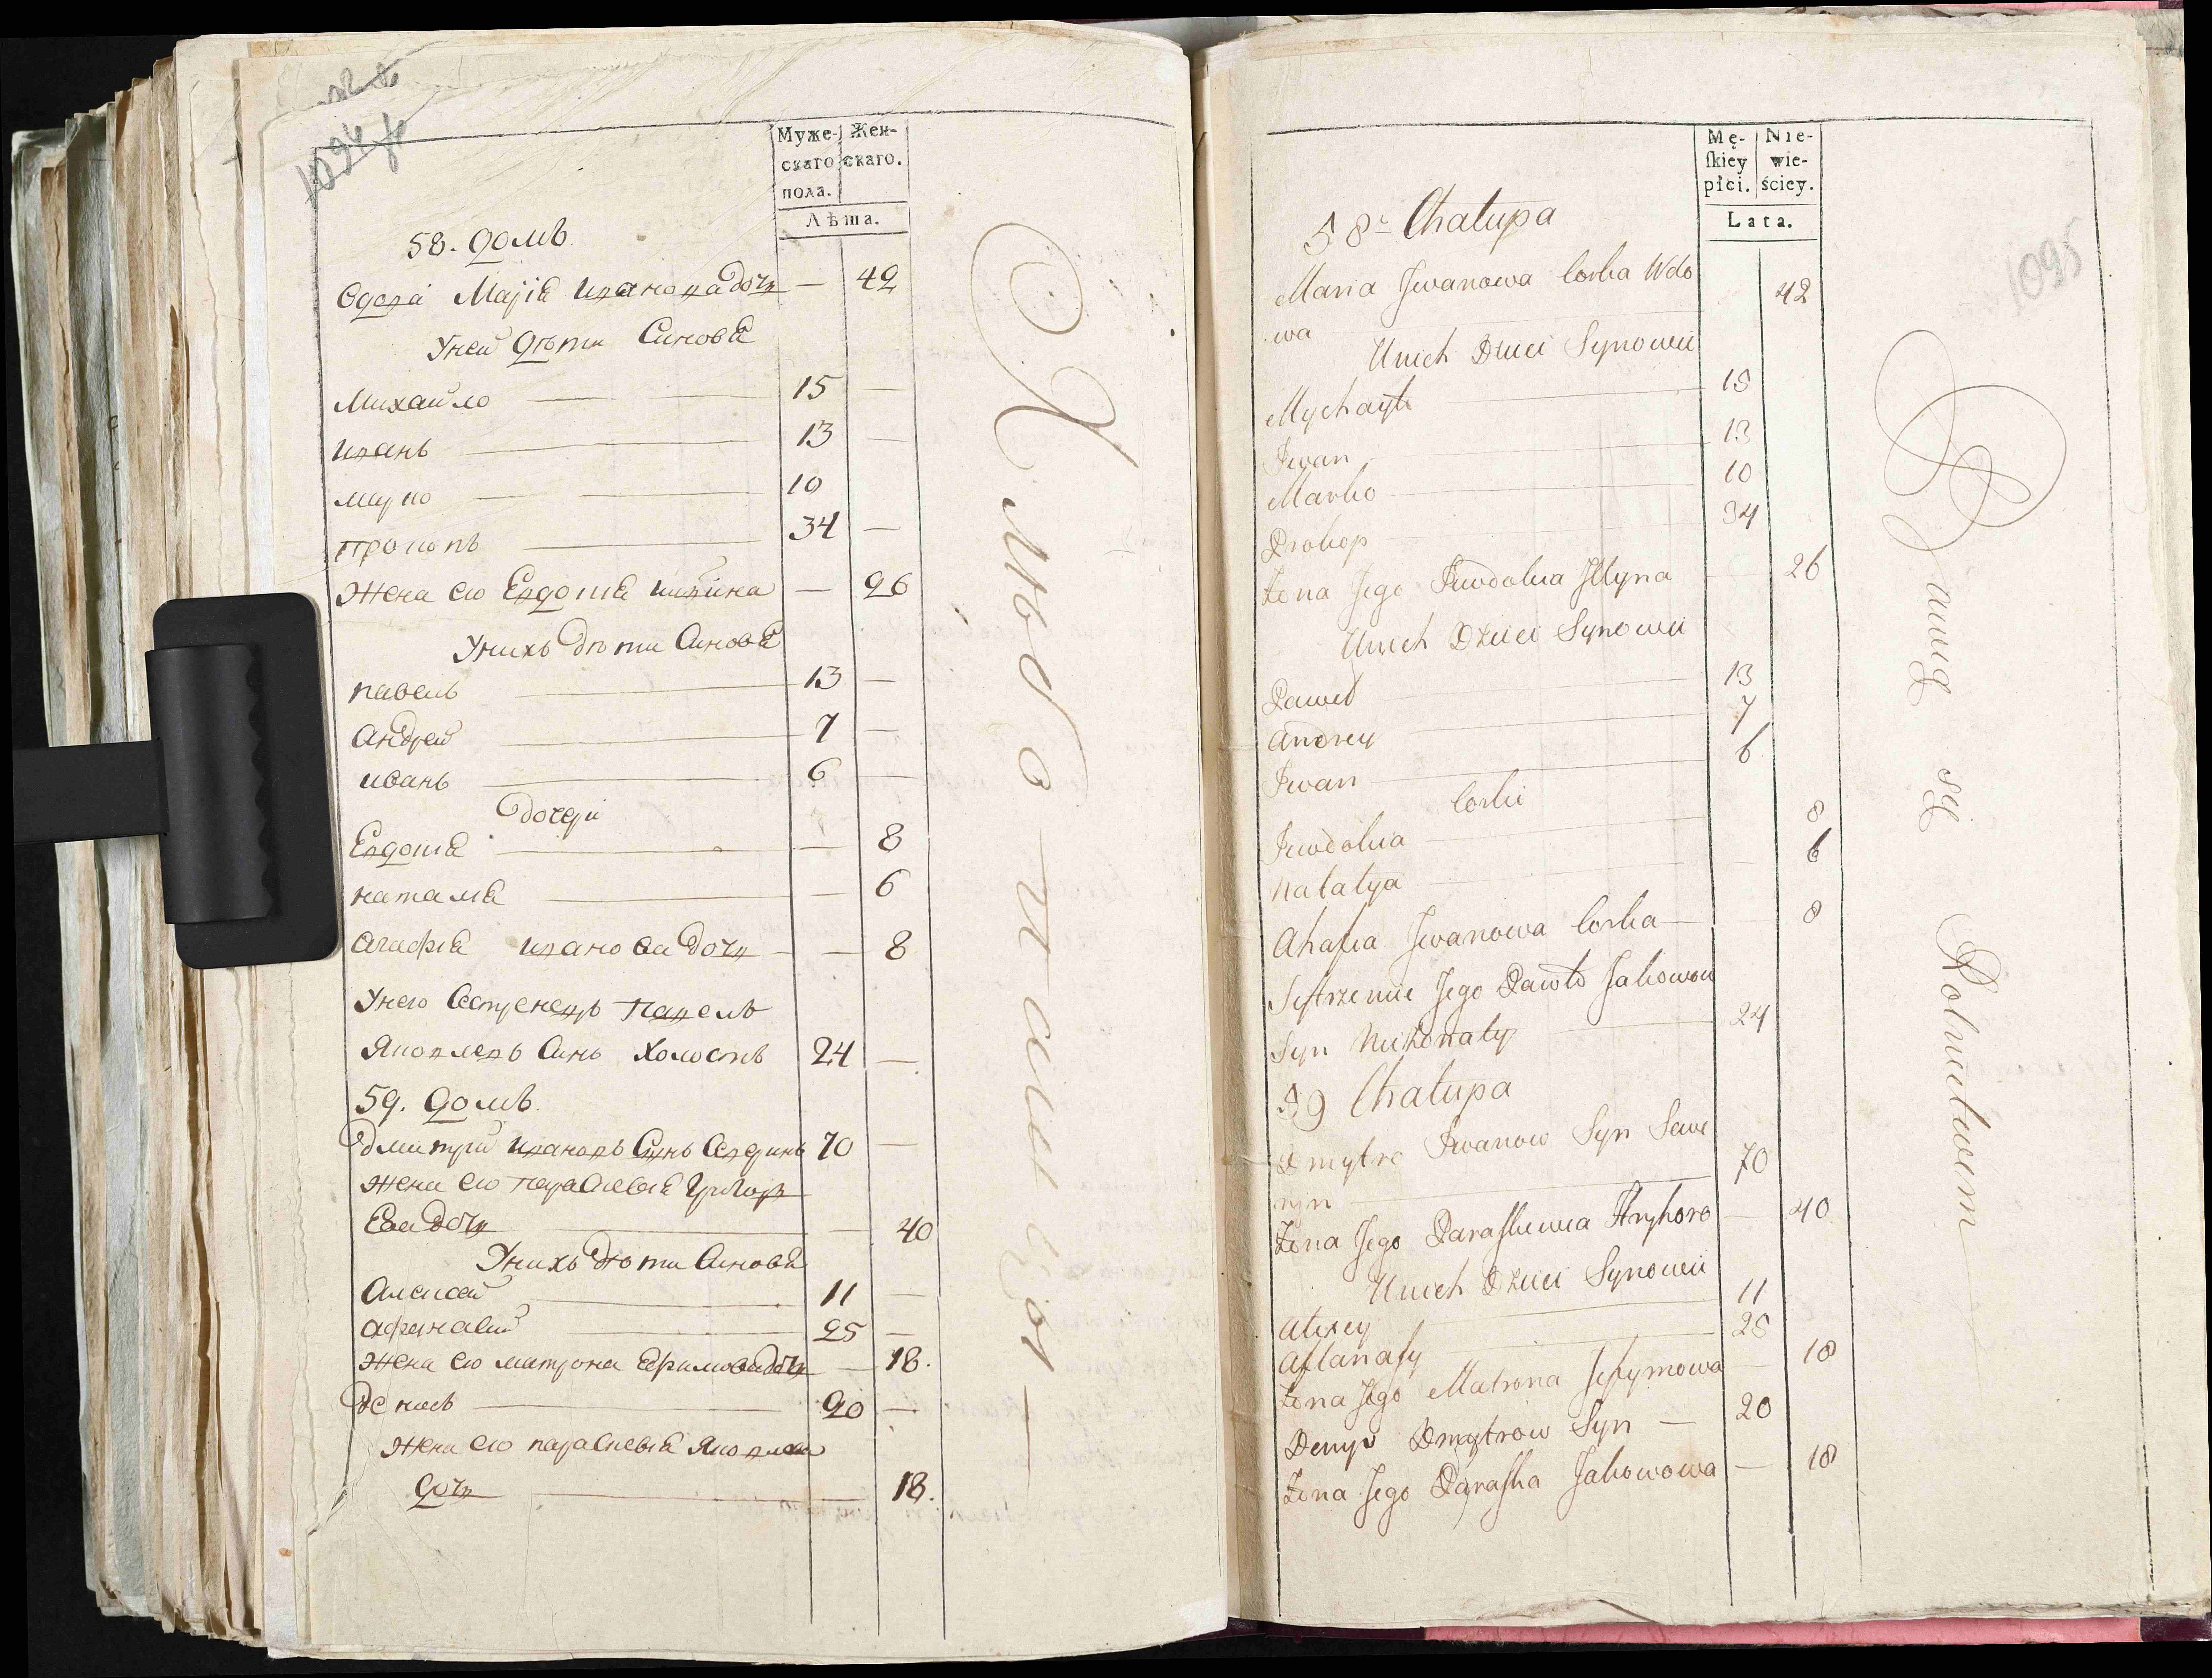 1094
Муже-
скаго
пола.
Жен-
скаго.
Лѣта.
58. домъ
Вдова Марія Иванова дочь — 42
Уней дѣти Синовя
Михайло — 15 —
Иванъ — 13 —
Марко — 10
Прокопъ — 34 —
Жена его Евдокія — 26
Унихъ дѣти Синовя
павелъ — 13 —
Андрей — 7 —
иванъ — 6 —
дочери
Евдокія — 8
наталія — 6
агафія Иванова дочь — 8
Унего Сестренецъ Павелъ
Яковлевъ Синъ Холостъ 24 —
59. домъ.
Дмитрій Ивановъ Синъ 70 —
Жена его Параскевія Григор
Ева дочь — 40
Унихъ дѣти Синовя
Алексей — 11 —
афанасий — 25 —
Жена его матрона Ефимова дочь — 18.
Денисъ — 20 —
Жена его параскевія Яковлева
дочь — 18.
Хлѣбопашецы
1095
Mę-
ſkiey
płci.
Nie-
wie-
ściey.
Lata.
58. Chałupa
Maria Jwanowa Corka Wdo 42
wa
Unich Dzieci Synowie
Mychayło 15
Jwan 13
Marko 10
Prokop 34
Żona Jego Juwdokia Jllyna 26
Unich Dzieci Synowie
Paweł 13
Andrey 7
Jwan 6
Corki
Juwdokia 8
Natalya 6
Ahafia Jwanowa Corka 8
Sestrzenic Jego Pawło Jakowow
Syn Nieżonaty 24
59 Chałupa
Dmytro Jwanow Syn Sawe
ryn 70
Żona Jego Paraſkewia Hryhoro 40
Unich Dzieci Synowie
Alexey 11
Aftanaſy 25
Żona Jego Matrona Jefymowa 18
Denys Dmytrow Syn — 20
Żona Jego Paraſka Jakowowa — 18
Bawią się Rolnictwem